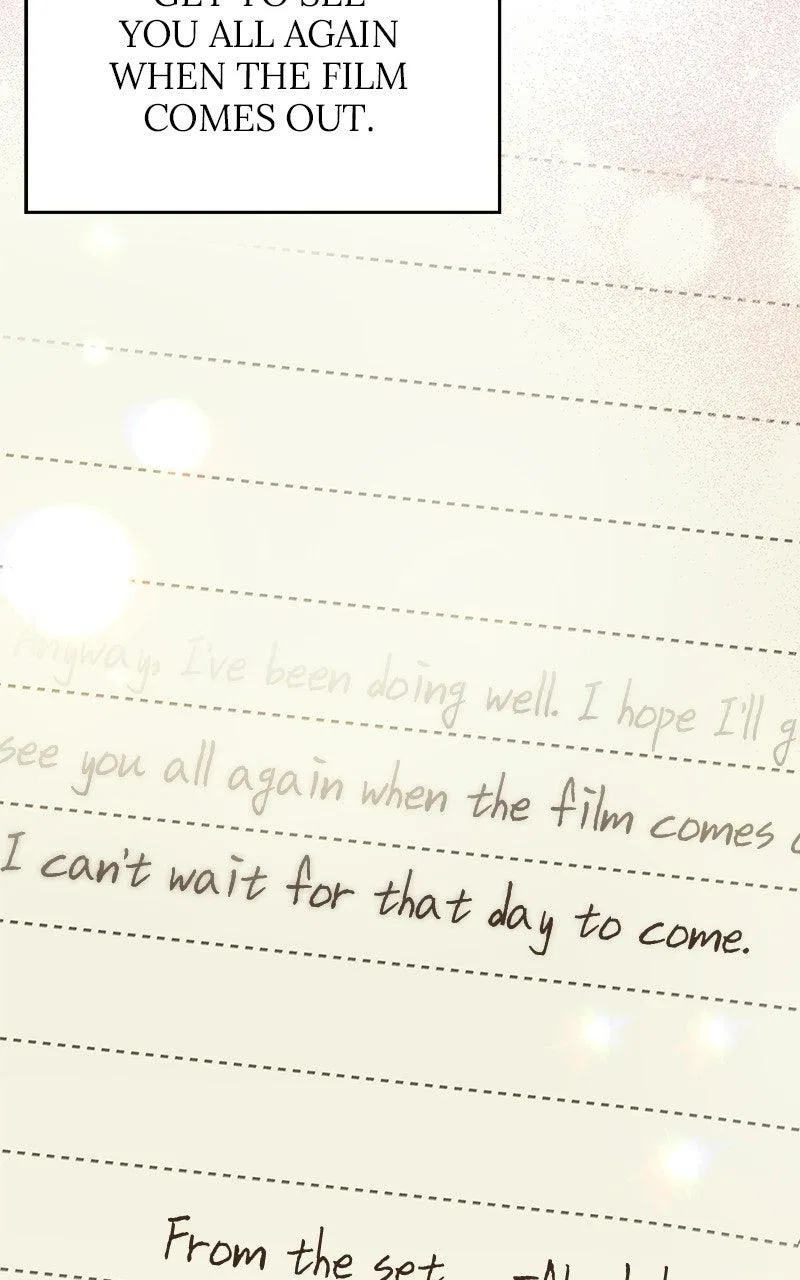 GET TO SEE
YOU ALL AGAIN
WHEN THE FILM
COMES OUT.
Anyway, I've been doing well. I hope I'll
see you all again when the film comes
I can't wait for that day to come.
From the set